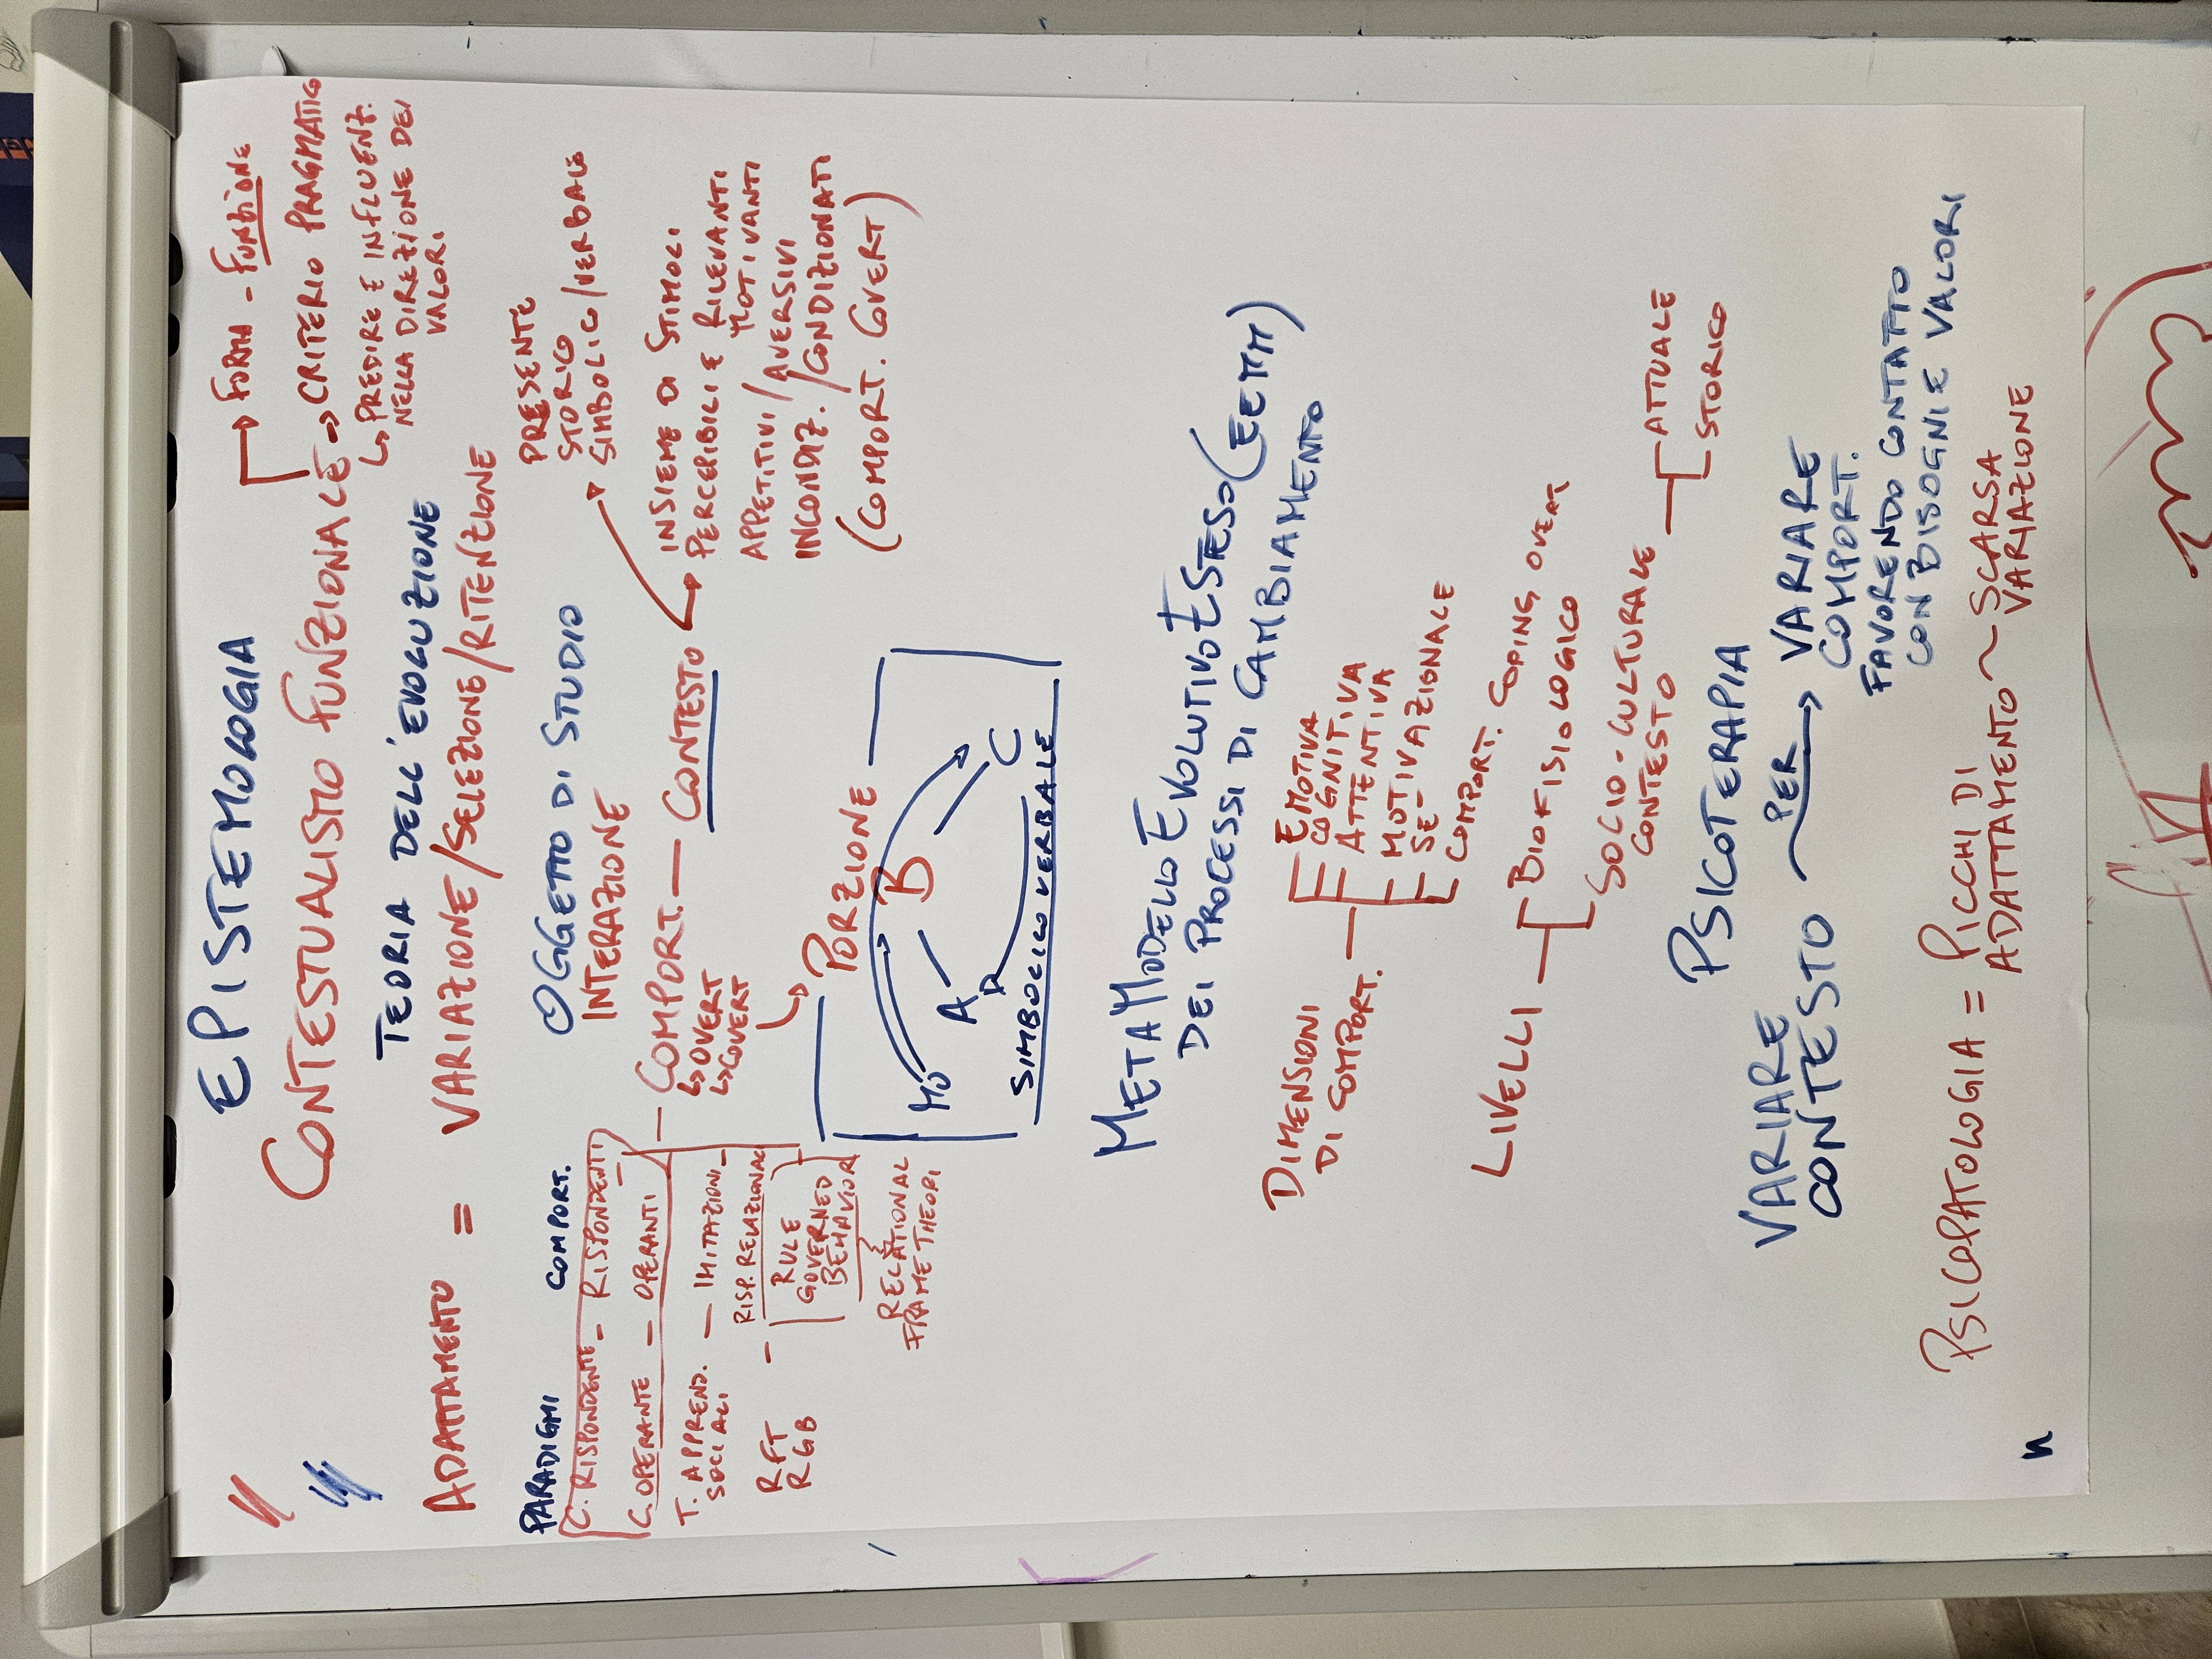 EPISTEMOLOGIA
→ FORMA - FUNZIONE
CONTESTUALISMO FUNZIONALE → CRITERIO PRAGMATICO
↳ PREDIRE E INFLUENZ.
NELLA DIREZIONE DEI
VALORI
TEORIA DELL'EVOLUZIONE
ADATTAMENTO = VARIAZIONE/SELEZIONE/RITENZIONE
OGGETTO DI STUDIO
INTERAZIONE
PARADIGMI COMPORT.
C. RISPONDENTE - RISPONDENTI
C. OPERANTE - OPERANTI
T. APPREND. - IMITAZIONI
SOCIALI
RFT - RISP. RELAZIONALI
RGB
RULE
GOVERNED
BEHAVIOR
RELATIONAL
FRAME THEORI
COMPORT. — CONTESTO
↳ OVERT
↳ COVERT
PRESENTE
STORICO
SIMBOLICO/VERBALE
INSIEME DI STIMOLI
PERCEPIBILI E RILEVANTI
MOTIVANTI
APPETITIVI/AVERSIVI
INCONDIZ./CONDIZIONATI
(COMPORT. COVERT)
→ PORZIONE
MO A — B — C
SIMBOLICO VERBALE
METAMODELLO EVOLUTIVO ESTESO (EEMM)
DEI PROCESSI DI CAMBIAMENTO
DIMENSIONI
DI COMPORT.
EMOTIVA
COGNITIVA
ATTENTIVA
MOTIVAZIONALE
SE-
COMPORT. COPING OVERT
LIVELLI
BIOFISIOLOGICO
SOCIO-CULTURALE
CONTESTO
ATTUALE
STORICO
PSICOTERAPIA
VARIARE
CONTESTO
PER →
VARIARE
COMPORT.
FAVORENDO CONTATTO
CON BISOGNI E VALORI
PSICOPATOLOGIA = PICCHI DI
ADATTAMENTO ~ SCARSA
VARIAZIONE